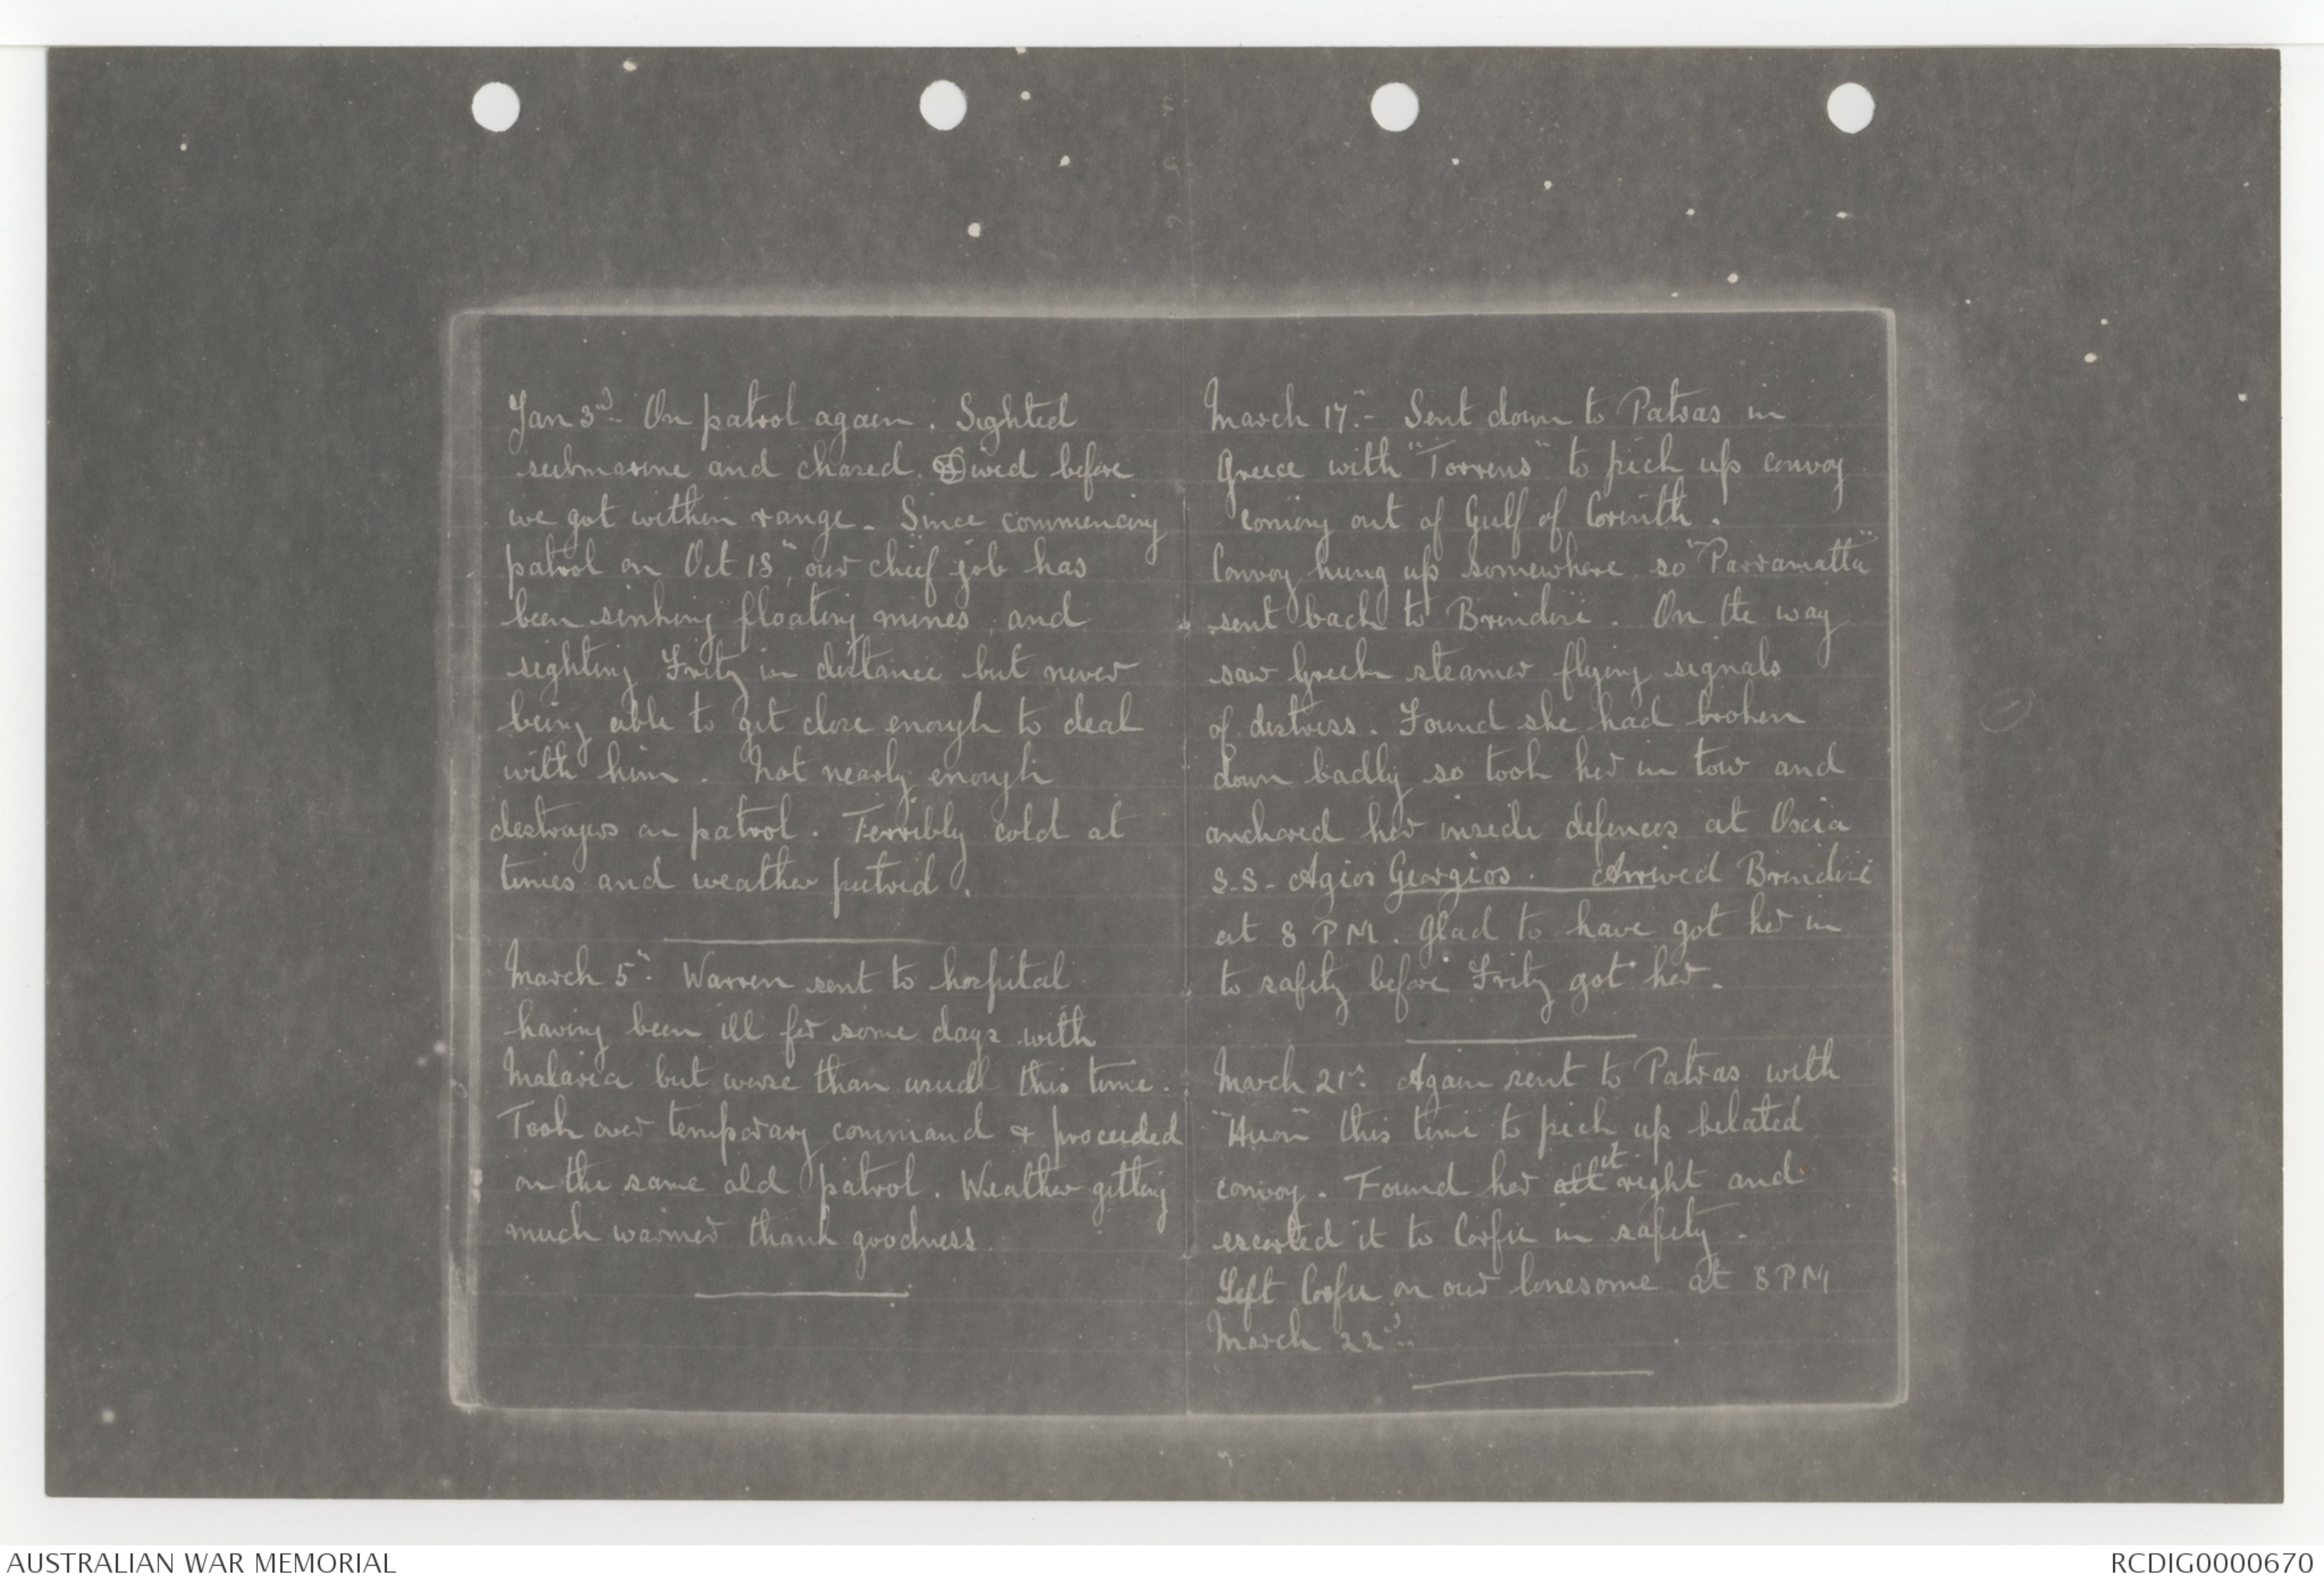 Jan 3rd - On patrol again. Sighted
submarine and chased. Dived before
we got within range. Since commencing
patrol on Oct 18", our chief job has
been sinking floating mines, and
sighting Fritz in distance but never
being able to get close enough to deal
with him. Not nearly enough
destroyers on patrol. Terribly cold at
times and weather putrid.
March 5": Warren sent to hospital
having been ill for some days with
Malaria but worse than usual this time.
Took over temporary command & proceeded
on the same old patrol. Weather getting
much warmer thank goodness.
March 17":- Sent down to Patras in
Greece with "Torrens" to pick up convoy
coming out of Gulf of Corinth.
Convoy hung up somewhere, so "Parramatta"
sent back to Brindisi. On the way
saw Greek steamer flying signals
of distress. Found she had broken
down badly so took her in tow and
anchored her inside defences at Oxia
S.S. Agios Georgios. Arrived Brindisi
at 8 PM. Glad to have got her in
to safety before Fritz got her.
March 21st: Again sent to Patras with
"Huon" this time to pick up belated
convoy. Found her all it right and
escorted it to Corfu in safety.
Left Corfu on our lonesome at 8 PM
March 22nd.
AUSTRALIAN WAR MEMORIAL
RCDIG0000670